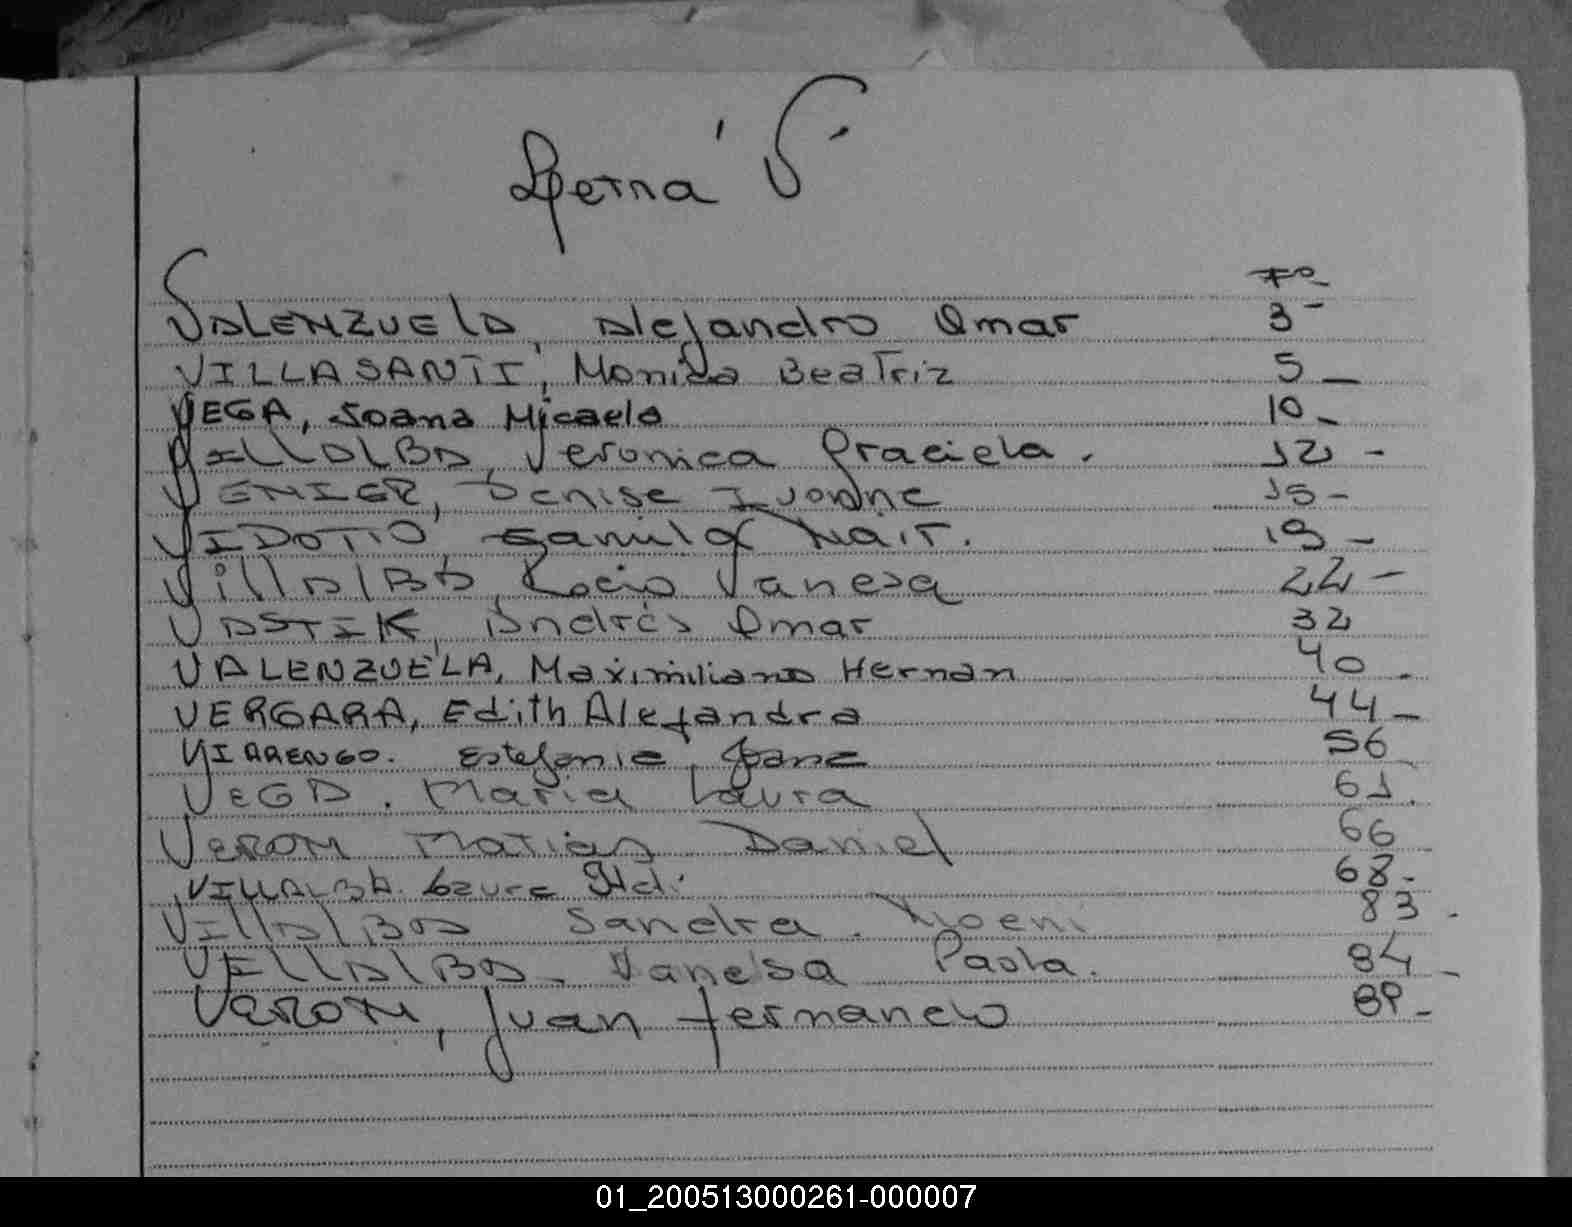 Letra V.
Fº
VALENZUELA, Alejandro Omar 3-
VILLASANTI, Monica Beatriz 5-
VEGA, Joana Micaela 10-
VILLALBA, Veronica Graciela. 12-
VENIER, Denise Ivonne 15-
VIDOTTO, Camila Nair. 19-
VillALBA, Rocio Vanesa 22-
VASTIK, Andrés Omar 32
VALENZUELA, Maximiliano Hernan 40-
VERGARA, Edith Alejandra 44-
56
VEGA. Mariel Laura 61
VERON Matias Daniel 66
VILLALBA. 68-
VillAlBA Sandra. Noemi 83-
VILLALBA. Vanesa Paola. 84-
VERON, Juan Fernando 89-
01_200513000261-000007